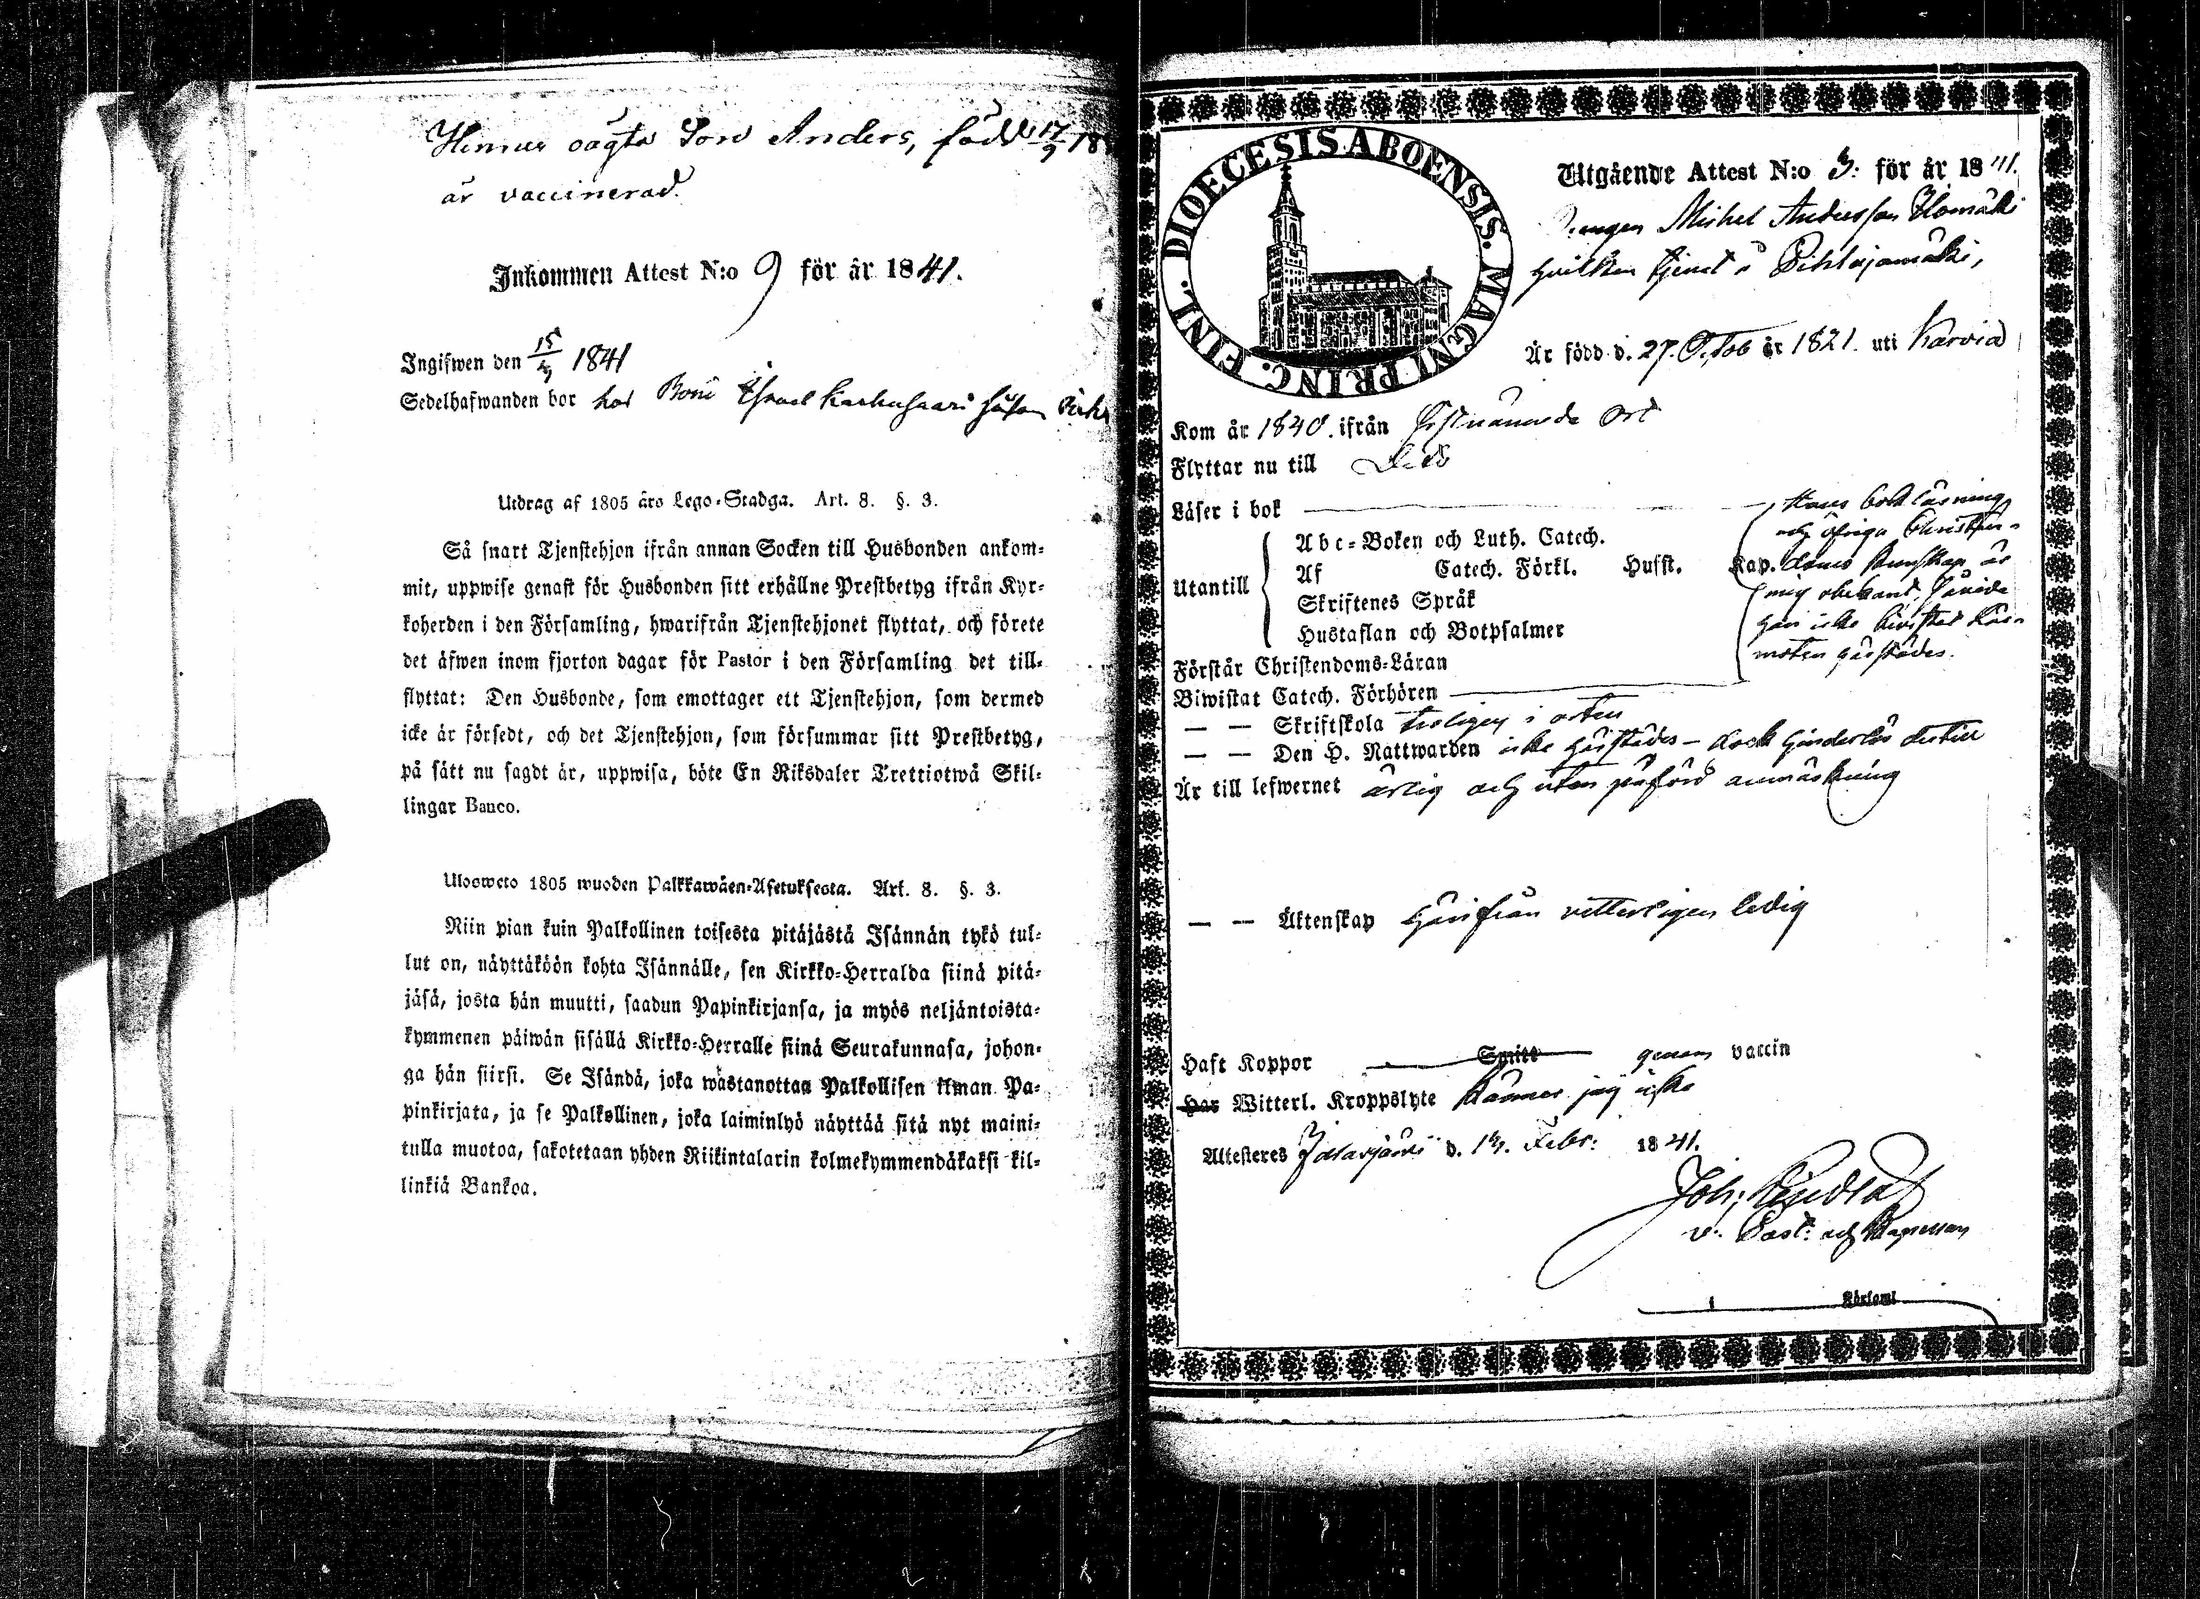 Hennes oägta Son Anders, född 17/9 18
är vaccinerad.
Inkommen Attest N:o 9 för år 1841.
Ingifwen den 15/4 1841
Sedelhafwanden bor hos Israel Karhusaari
Utdrag af 1805 års Lego-Stadga. Art. 8. §. 3.
Så snart Tjenstehjon ifrån annan Socken till Husbonden ankom-
mit, uppwise genast för Husbonden sitt erhållne Prestbetyg ifrån Kyr-
koherden i den Församling, hwarifrån Tjenstehjonet flyttat, och förete
det äfwen inom fjorton dagar för Pastor i den Församling det till-
flyttat: Den Husbonde, som emottager ett Tjenstehjon, som dermed
icke är försedt, och det Tjenstehjon, som försummar sitt Prestbetyg,
på sätt nu sagdt är, uppwisa, böte En Riksdaler Trettiotwå Skil-
lingar Banco.
Ulosweto 1805 wuoden Palkkawäen-Asetuksesta. Art. 8. §. 3.
Niin pian kuin Palkollinen toisesta pitäjästä Isännän tykö tul-
lut on, näyttäköön kohta Isännälle, sen Kirkko-Herralda siinä pitä-
jäsä, josta hän muutti, saadun Papinkirjansa, ja myös neljäntoista-
kymmenen päiwän sisällä Kirkko-Herralle siinä Seurakunnasa, johon-
ga hän siirsi. Se Isändä, joka wastanottaa Palkollisen ilman Pa-
pinkirjata, ja se Palkollinen, joka laiminlyö näyttää sitä nyt maini-
tulla muotoa, sakotetaan yhden Riikintalarin kolmekymmendäkaksi kil-
linkiä Bankoa.
DIOECESIS ABOENSIS. MAGNI PRINC. FINL.
Utgående Attest N:o 3. för år 1841.
Drengen Michel Andersson
hvilken tjent i Pihlajamäki,
Är född d. 27. Octob år 1821. uti Karvia
Kom år 1840. ifrån sistnämnde ort
Flyttar nu till
Läser i bok
Hans bokläsning
och öfriga Christen-
doms kunskap är
mig obekant,
han icke bivistat läse-
möten härstädes.
Utantill
Abc-Boken och Luth. Catech.
Af Catech. Förkl. Husst. Kap.
Skriftenes Språk
Hustaflan och Botpsalmer
Förstår Christendoms-Läran
Biwistat Catech. Förhören
— — Skriftskola troligen i orten
— — Den H. Nattwarden icke härstädes – dock hinderlös dertill
Är till lefwernet ärlig och utan påförd anmärkning
— — Äktenskap härifrån vetterligen ledig
Haft Koppor Smitt genom vaccin
Har Witterl. Kroppslyte känner jag icke
Attesteres Jalasjärvi d. Febr: 1841.
Joh:
v. Past. och Kapellan
Församl